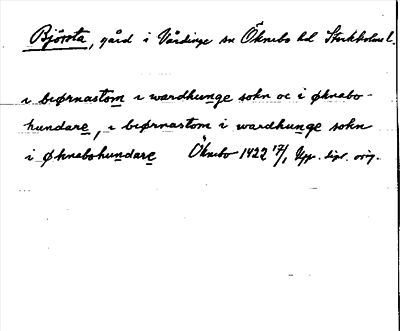 Björsta, gård i Vårdinge sn Öknebo hd Stockholms l.
i biørnastom i wardhunge sokn oc i øknabo-
hundare, i biørnastom i wardhunge sokn
i øknabohundare Öknebo 1422 17/1 Upp. dipl. orig.